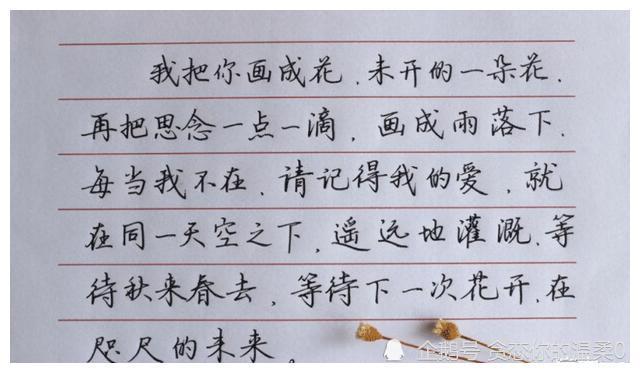 我把你画成花，未开的一朵花，
再把思念一点一滴，画成雨落下，
每当我不在，请记得我的爱，就
在同一天空之下，遥远地灌溉，等
待秋来春去，等待下一次花开，在
咫尺的未来。
企鹅号 贪恋你的温柔0